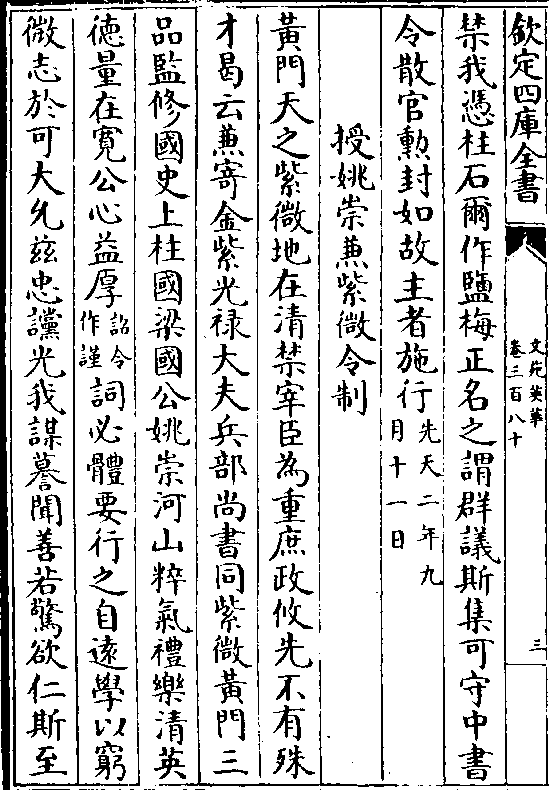 欽定四庫全書
文苑英華
卷三百八十
三
禁我憑柱石爾作鹽梅正名之謂群議斯集可守中書
令散官勲封如故主者施行先天二年九
月十一日
授姚崇兼紫微令制
黃門天之紫微地在清禁宰臣為重庶政攸先不有殊
才曷云兼寄金紫光禄大夫兵部尚書同紫微黃門三
品監修國史上柱國梁國公姚崇河山粹氣禮樂清英
徳量在寛公心益厚詔令
作謹詞必體要行之自逺學以窮
微志於可大允兹忠讜光我謀謩聞善若驚欲仁斯至